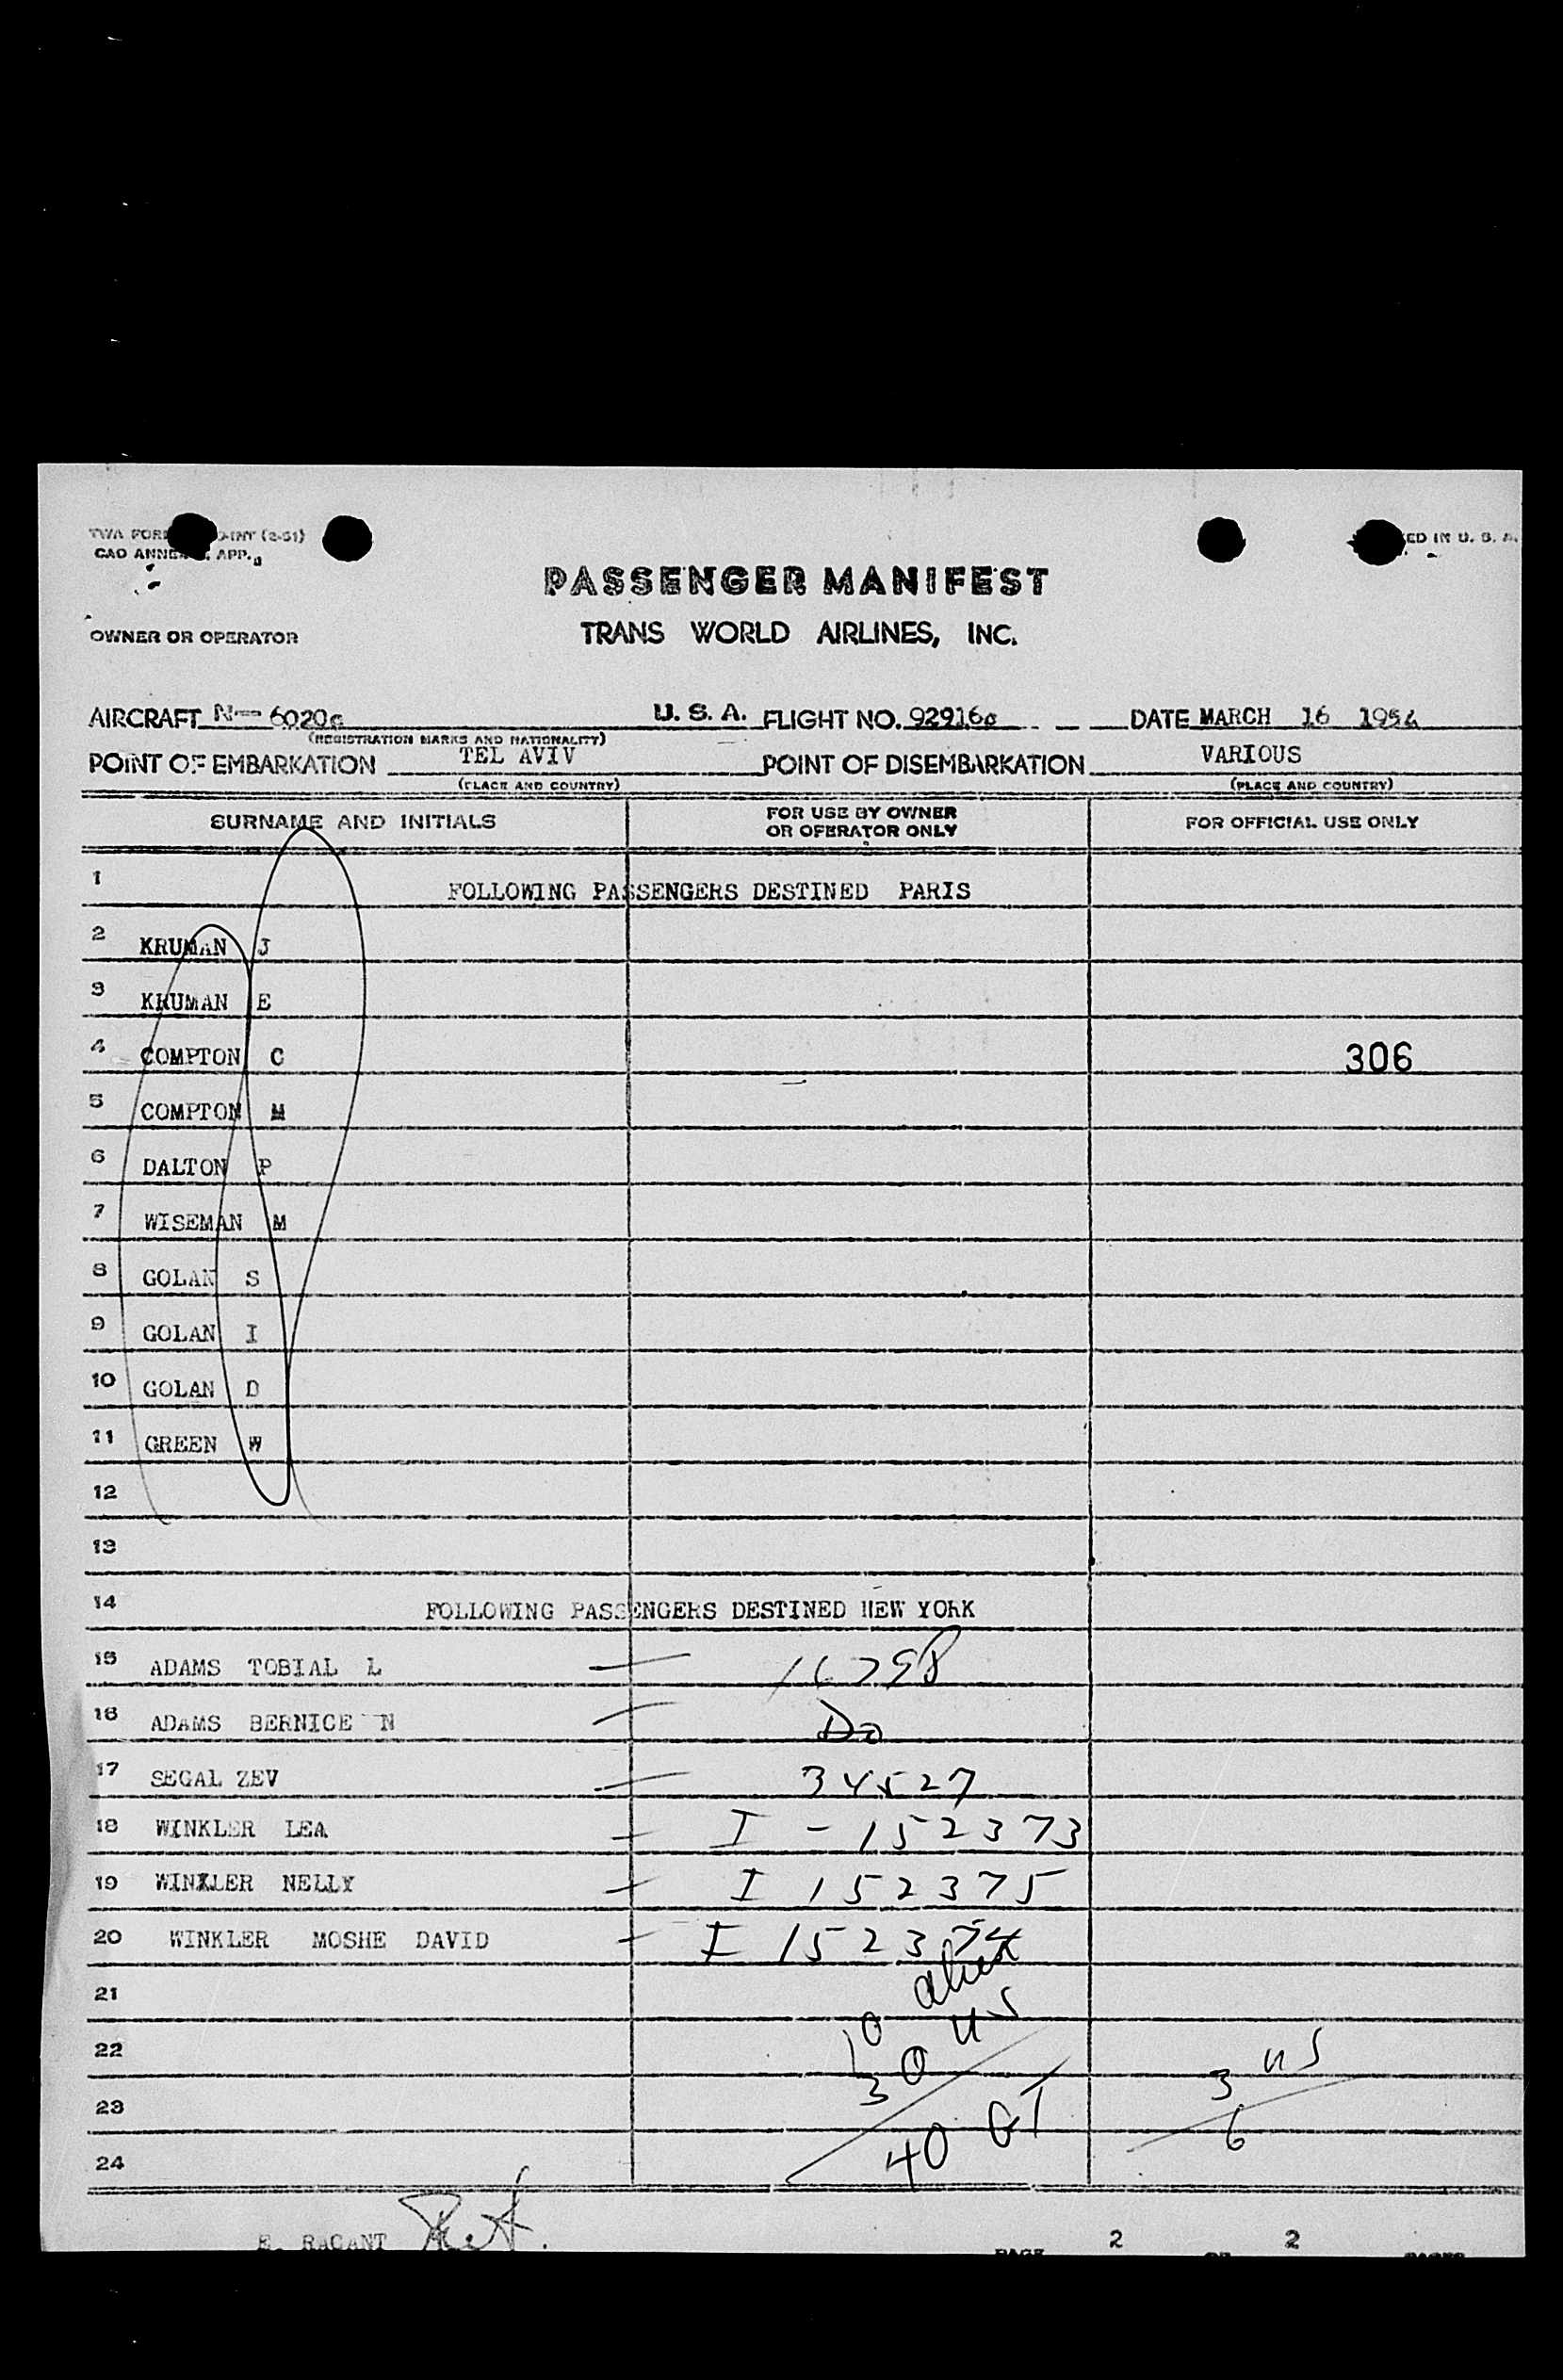 CAO ANNEX APP.
PASSENGER MANIFEST
OWNER OR OPERATOR TRANS WORLD AIRLINES, INC.
AIRCRAFT N— 6020c U. S. A. FLIGHT NO. 92916c DATE MARCH 16 1954
(REGISTRATION MARKS AND NATIONALITY)
POINT OF EMBARKATION TEL AVIV POINT OF DISEMBARKATION VARIOUS
(PLACE AND COUNTRY) (PLACE AND COUNTRY)
SURNAME AND INITIALS FOR USE BY OWNER OR OPERATOR ONLY FOR OFFICIAL USE ONLY
1 FOLLOWING PASSENGERS DESTINED PARIS
2 KRUMAN J
3 KRUMAN E
4 COMPTON C 306
5 COMPTON M
6 DALTON P
7 WISEMAN M
8 GOLAN S
9 GOLAN I
10 GOLAN D
11 GREEN W
12
13
14 FOLLOWING PASSENGERS DESTINED NEW YORK
15 ADAMS TOBIAL L — 16798
16 ADAMS BERNICE N — Do
17 SEGAL ZEV — 34527
18 WINKLER LEA — I - 152373
19 WINKLER NELLY — I 152375
20 WINKLER MOSHE DAVID — I 152374
21 alien
22 10 US
23 30
24 40 GT
3 US
6
E. RACANT
PAGE 2 OF 2 PAGES